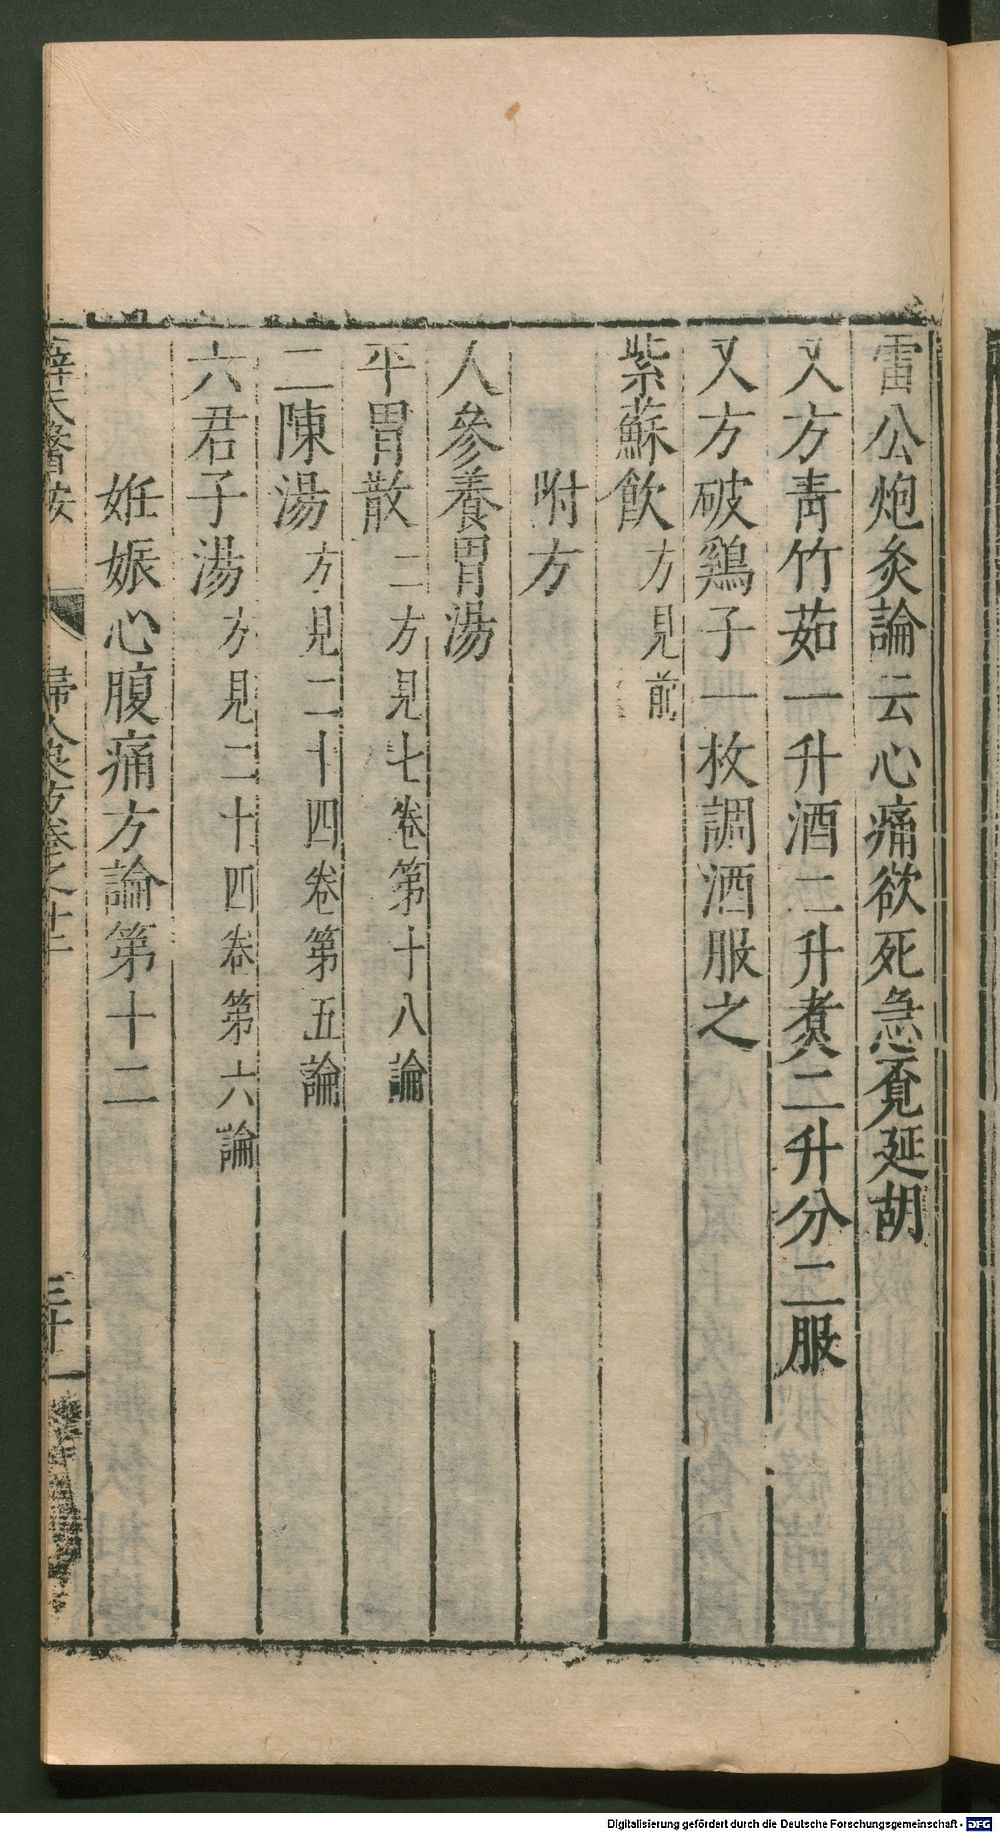 雷公炮炙論云心痛欲死急覔延胡
又方青竹茹一升酒二升煮二升分二服
又方破鷄子一枚調酒服之
紫蘇飲方見前
附方
人參養胃湯
平胃散二方見七卷第十八論
二陳湯方見二十四卷第五論
六君子湯方見二十四卷第六論
妊娠心腹痛方論第十二
薛氏醫按 婦人良方卷之十二 三十
Digitalisierung gefördert durch die Deutsche Forschungsgemeinschaft - DFG